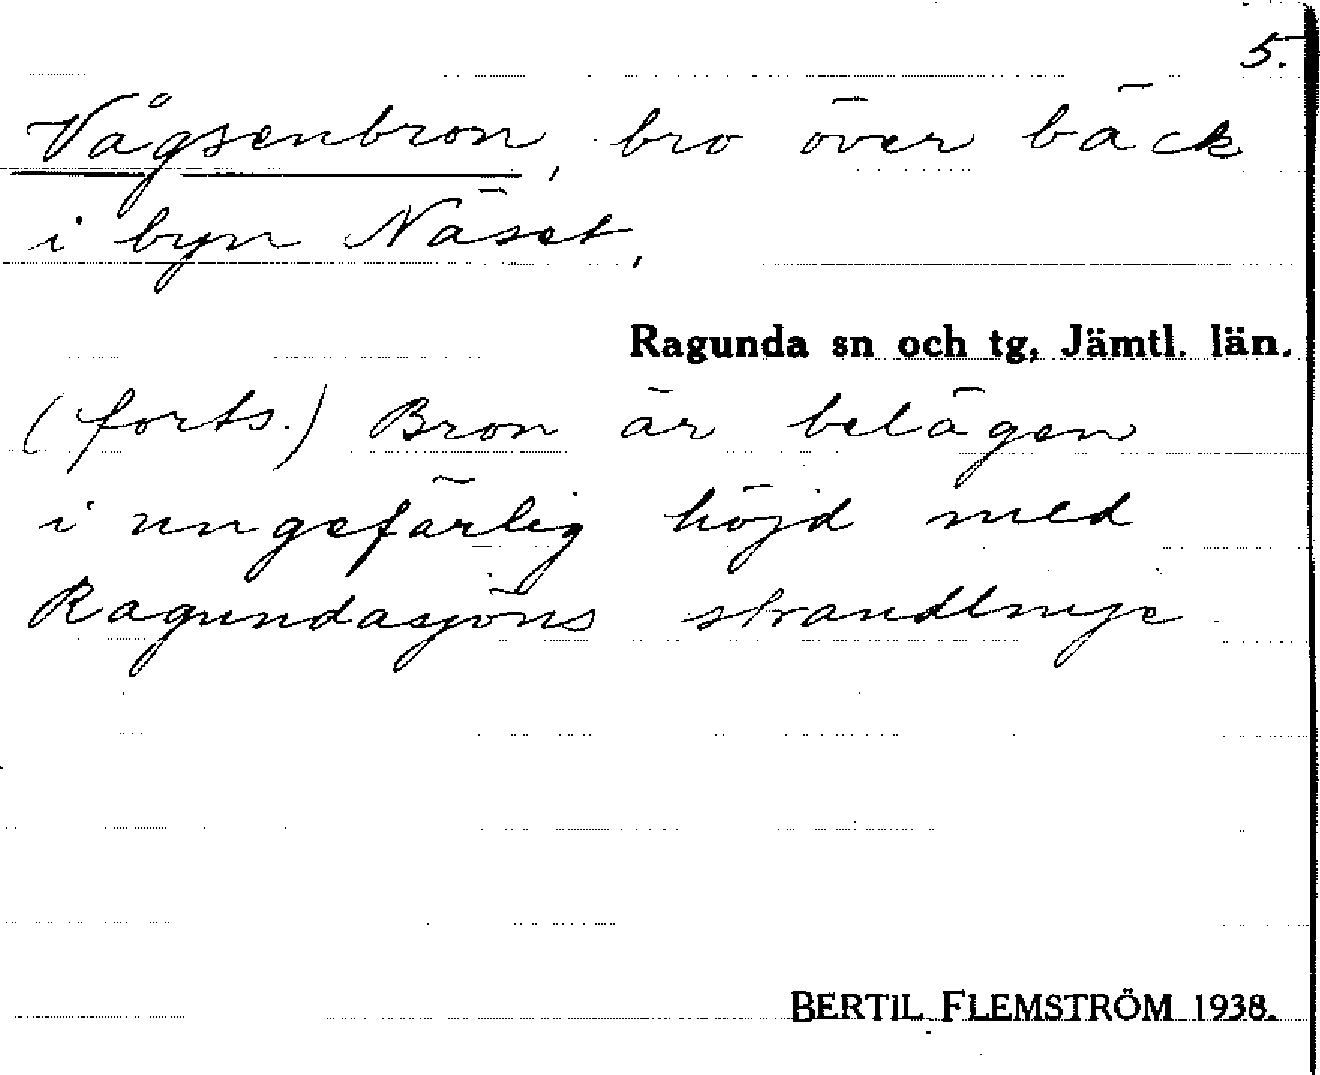 5.
Vågsenbron, bro över bäck
i byn Näset,
Ragunda sn och tg, Jämtl. län.
(forts.) Bron är belägen
i ungefärlig höjd med
Ragundasjöns strandlinje
BERTIL FLEMSTRÖM 1938.